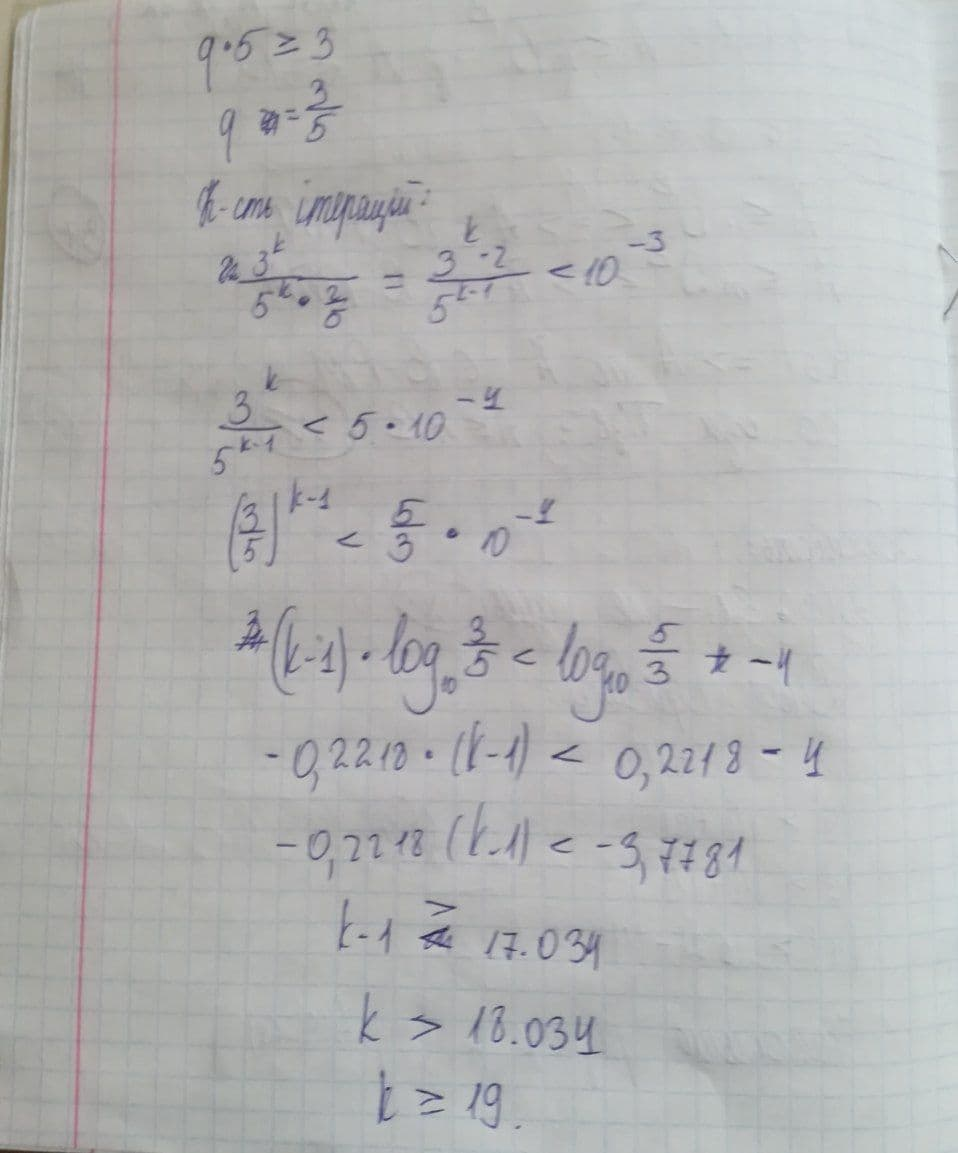 q·5 ≥ 3
q = 3/5
К-сть ітерацій:
3^k / (5^k · 2/5) = (3^k · 2) / 5^(k-1) < 10^(-3)
3^k / 5^(k-1) < 5 · 10^(-4)
(3/5)^(k-1) < 5/3 · 10^(-4)
(k-1) · log₁₀ 3/5 < log₁₀ 5/3 - 4
- 0,2218 · (k-1) < 0,2218 - 4
- 0,2218 (k-1) < -3,7781
k-1 > 17.034
k > 18.034
k ≥ 19.